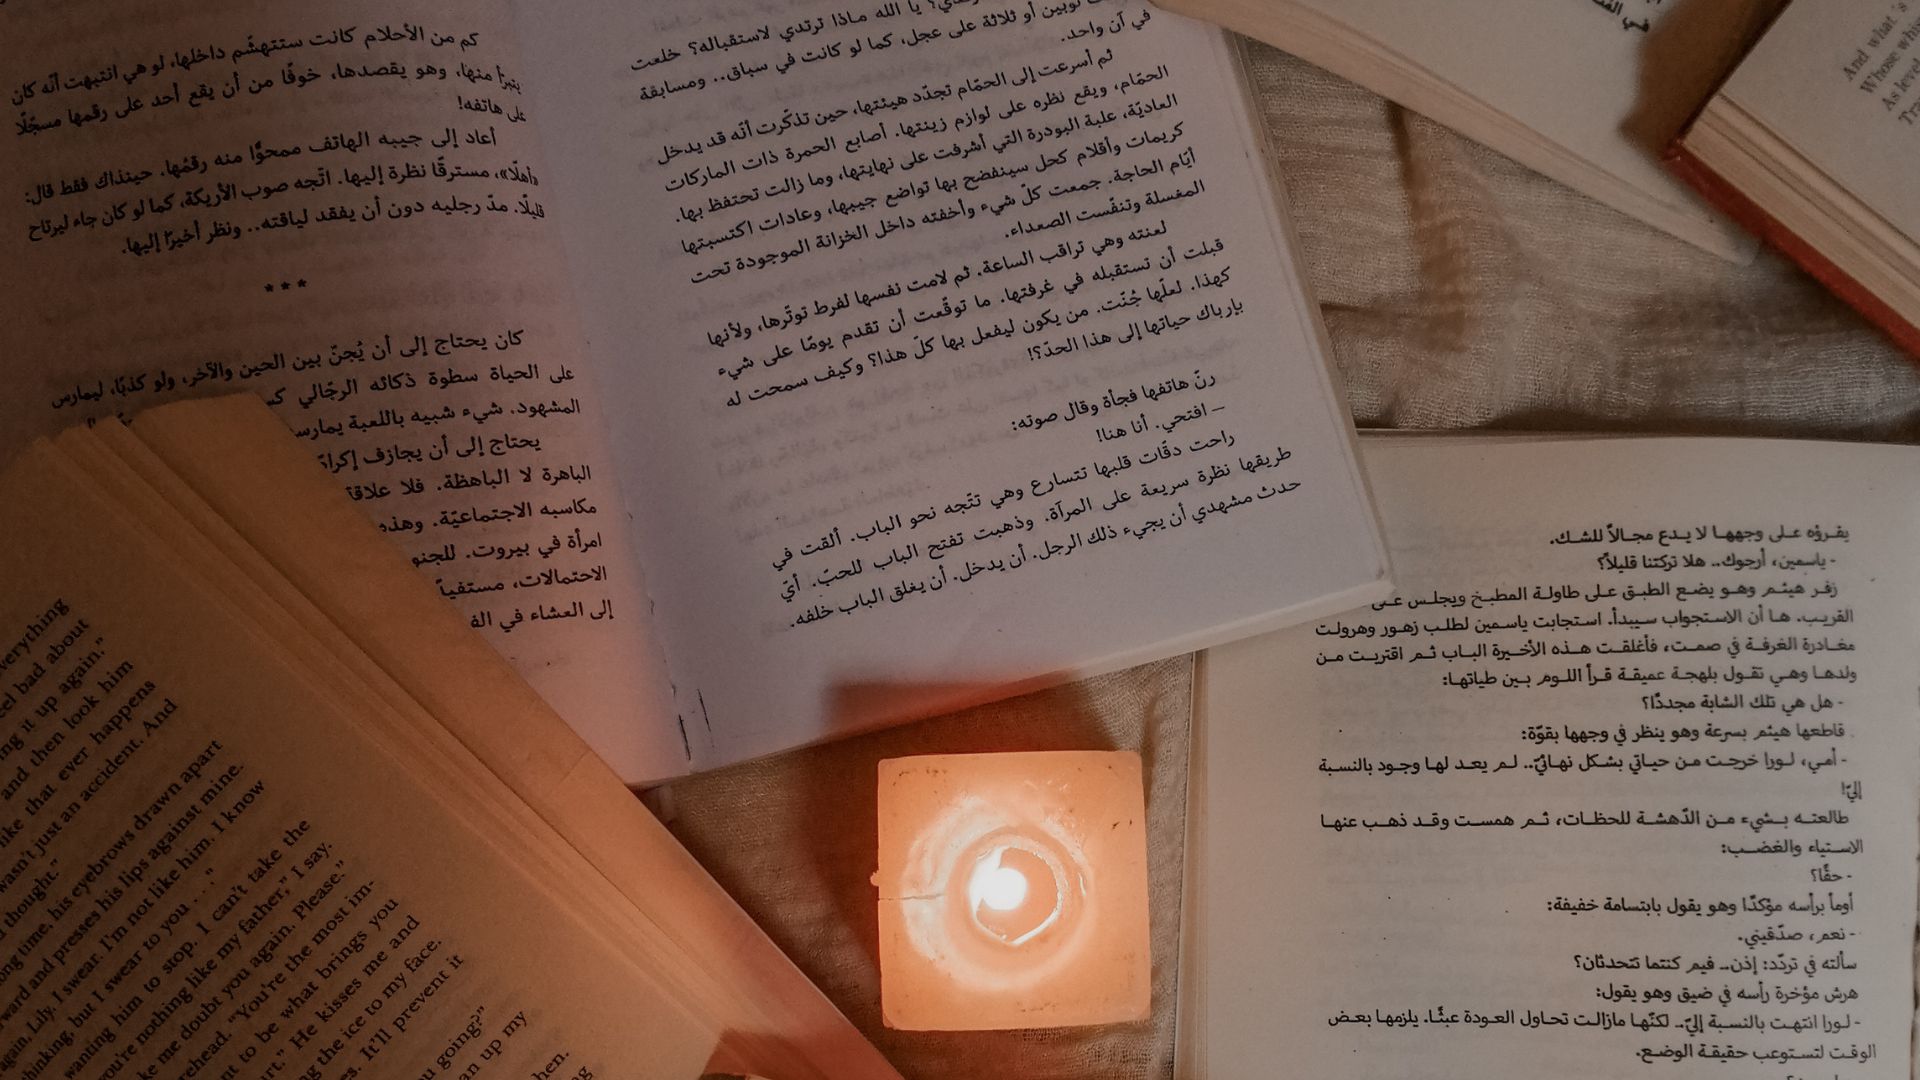 كم من الأحلام كانت ستتهشّم داخلها، لو هي انتبهت أنّه كان
يتبرّأ منها، وهو يقصدها، خوفًا من أن يقع أحد على رقمها مسجّلًا
على هاتفه!
أعاد إلى جيبه الهاتف ممحوًّا منه رقمُها. حينذاك فقط قال:
«أهلًا»، مسترقًا نظرة إليها. اتّجه صوب الأريكة، كما لو كان جاء ليرتاح
قليلًا. مدّ رجليه دون أن يفقد لياقته.. ونظر أخيرًا إليها.
***
كان يحتاج إلى أن يُجنّ بين الحين والآخر، ولو كذبًا، ليمارس
على الحياة سطوة ذكائه الرجّالي
المشهود. شيء شبيه باللعبة
يحتاج إلى أن يجازف
الباهرة لا الباهظة. فلا
مكاسبه الاجتماعيّة. وهذه
امرأة في بيروت.
الاحتمالات،
إلى العشاء في
يا الله ماذا ترتدي لاستقباله؟ خلعت
ثوبين أو ثلاثة على عجل، كما لو كانت في سباق.. ومسابقة
في آن واحد.
ثم أسرعت إلى الحمّام تجدّد هيئتها، حين تذكّرت أنّه قد يدخل
الحمّام، ويقع نظره على لوازم زينتها. أصابع الحمرة ذات الماركات
العاديّة، علبة البودرة التي أشرفت على نهايتها، وما زالت تحتفظ بها.
كريمات وأقلام كحل سينفضح بها تواضع جيبها، وعادات اكتسبتها
أيّام الحاجة. جمعت كلّ شيء وأخفته داخل الخزانة الموجودة تحت
المغسلة وتنفّست الصعداء.
لعنته وهي تراقب الساعة. ثم لامت نفسها لفرط توتّرها، ولأنها
قبلت أن تستقبله في غرفتها. ما توقّعت أن تقدم يومًا على شيء
كهذا. لعلّها جُنّت. من يكون ليفعل بها كلّ هذا؟ وكيف سمحت له
بإرباك حياتها إلى هذا الحدّ؟!
رنّ هاتفها فجأة وقال صوته:
– افتحي. أنا هنا!
راحت دقّات قلبها تتسارع وهي تتّجه نحو الباب. ألقت في
طريقها نظرة سريعة على المرآة. وذهبت تفتح الباب للحبّ. أيّ
حدث مشهدي أن يجيء ذلك الرجل. أن يدخل. أن يغلق الباب خلفه.
And what's
As level
يفرؤه على وجهها لا يدع مجالاً للشك.
- ياسمين، أرجوك.. هلا تركتنا قليلاً؟
زفر هيثم وهو يضع الطبق على طاولة المطبخ ويجلس على
القريب. ها أن الاستجواب سيبدأ. استجابت ياسمين لطلب زهور وهرولت
مغادرة الغرفة في صمت، فأغلقت هذه الأخيرة الباب ثم اقتربت من
ولدها وهي تقول بلهجة عميقة قرأ اللوم بين طياتها:
- هل هي تلك الشابة مجددًا؟
قاطعها هيثم بسرعة وهو ينظر في وجهها بقوّة:
- أمي، لورا خرجت من حياتي بشكل نهائيّ.. لم يعد لها وجود بالنسبة
إليّ!
طالعته بشيء من الدّهشة للحظات، ثم همست وقد ذهب عنها
الاستياء والغضب:
- حقًا؟
أومأ برأسه مؤكدًا وهو يقول بابتسامة خفيفة:
- نعم، صدّقيني.
سألته في تردّد: إذن.. فيم كنتما تتحدثان؟
هرش مؤخرة رأسه في ضيق وهو يقول:
- لورا انتهت بالنسبة إليّ.. لكنّها مازالت تحاول العودة عبثًا. يلزمها بعض
الوقت لتستوعب حقيقة الوضع.
everything
feel bad about
it up again."
and then look him
like that ever happens
wasn't just an accident. And
thought."
time, his eyebrows drawn apart
and presses his lips against mine.
again, Lily. I swear. I'm not like him. I know
thinking, but I swear to you . . ."
wanting him to stop. I can't take the
you're nothing like my father," I say.
me doubt you again. Please."
"You're the most im-
to be what brings you
He kisses me and
the ice to my face.
It'll prevent it
going?"
up my